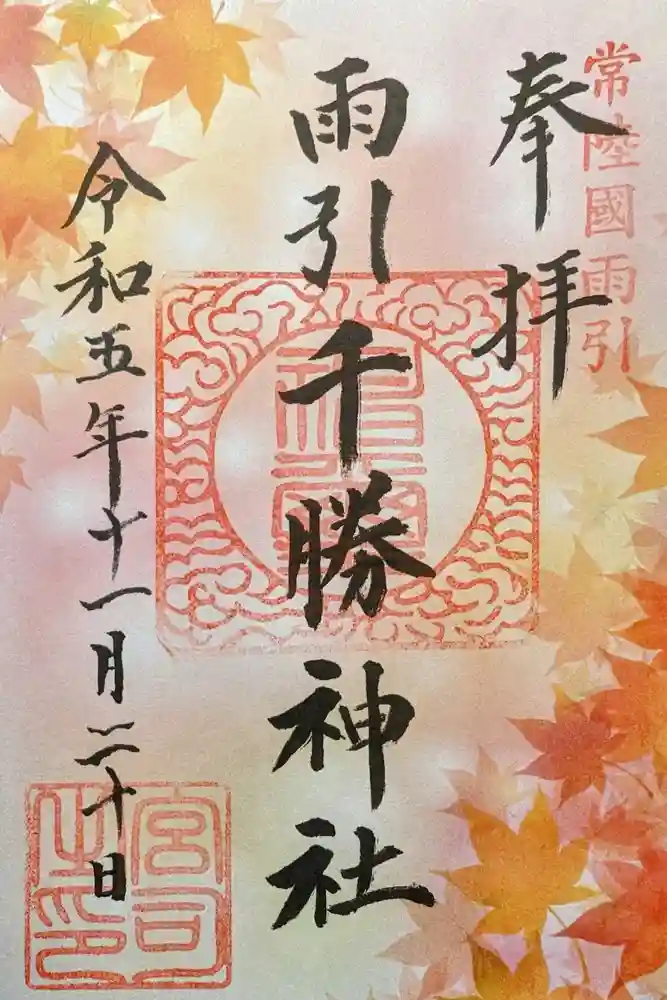 常陸國雨引
奉拝
雨引千勝神社
令和五年十一月三十日
宮司之印